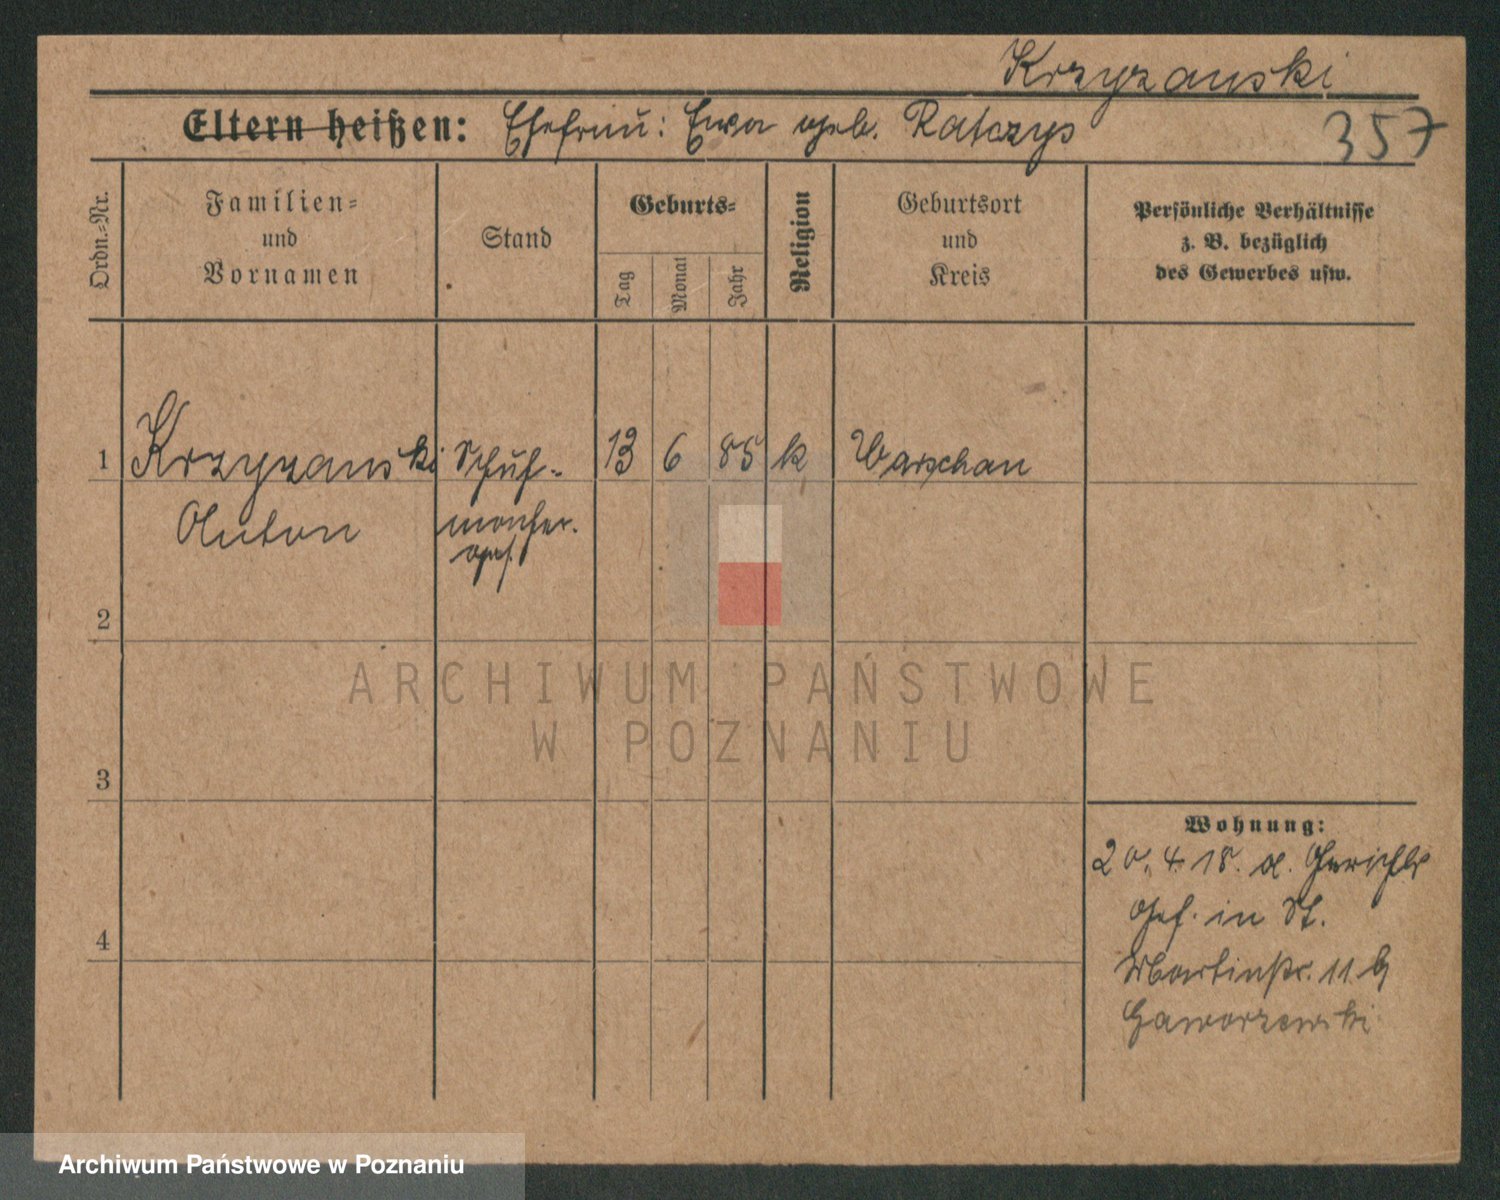 Krzyzanski
Eltern heißen: Ehefrau: Ewa geb. Ratczys
357
Ordn.-Nr.
Familien- und Vornamen
Stand
Geburts-
Tag
Monat
Jahr
Religion
Geburtsort und Kreis
Persönliche Verhältnisse
z. B. bezüglich
des Gewerbes usw.
1 Krzyzanski Schuh- 13 6 85 k Warschau
Anton macher.
ges.
2
3
4
Wohnung:
20. 4. 18. a. Gerichts
Gef. in St.
Martinstr. 11 b
Gaworzewski
ARCHIWUM PAŃSTWOWE
W POZNANIU
Archiwum Państwowe w Poznaniu